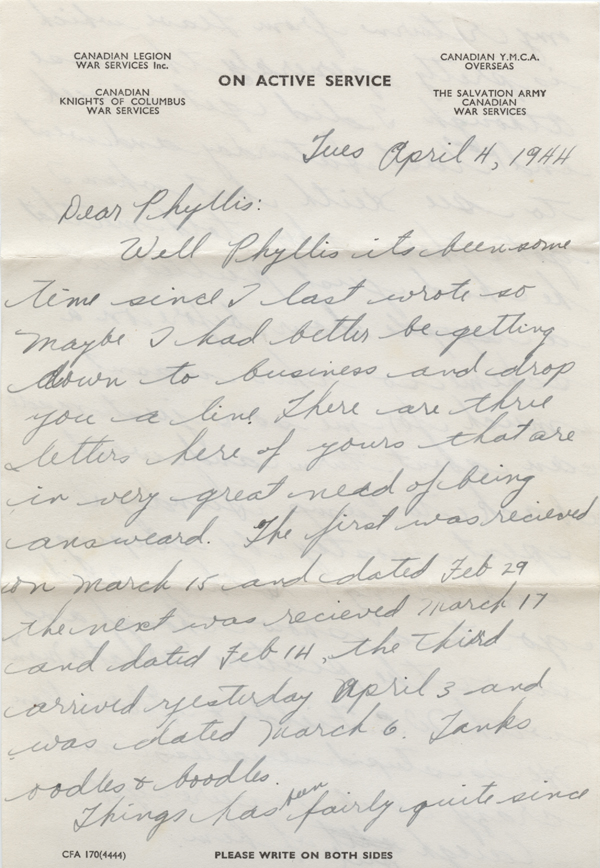 CANADIAN LEGION
WAR SERVICES Inc.
CANADIAN
KNIGHTS OF COLUMBUS
WAR SERVICES
ON ACTIVE SERVICE
CANADIAN Y.M.C.A.
OVERSEAS
THE SALVATION ARMY
CANADIAN
WAR SERVICES
Tues April 4, 1944
Dear Phyllis:
Well Phyllis its been some
time since I last wrote so
maybe I had better be getting
down to business and drop
you a line. There are three
letters here of yours that are
in very great need of being
answeard. The first was recieved
on March 15 and dated Feb 29
the next was recieved March 17
and dated Feb 14, the third
arrived yesterday April 3 and
was dated March 6. Tanks
oodles & boodles.
Things has been fairly quite since
CFA 170(4444)
PLEASE WRITE ON BOTH SIDES